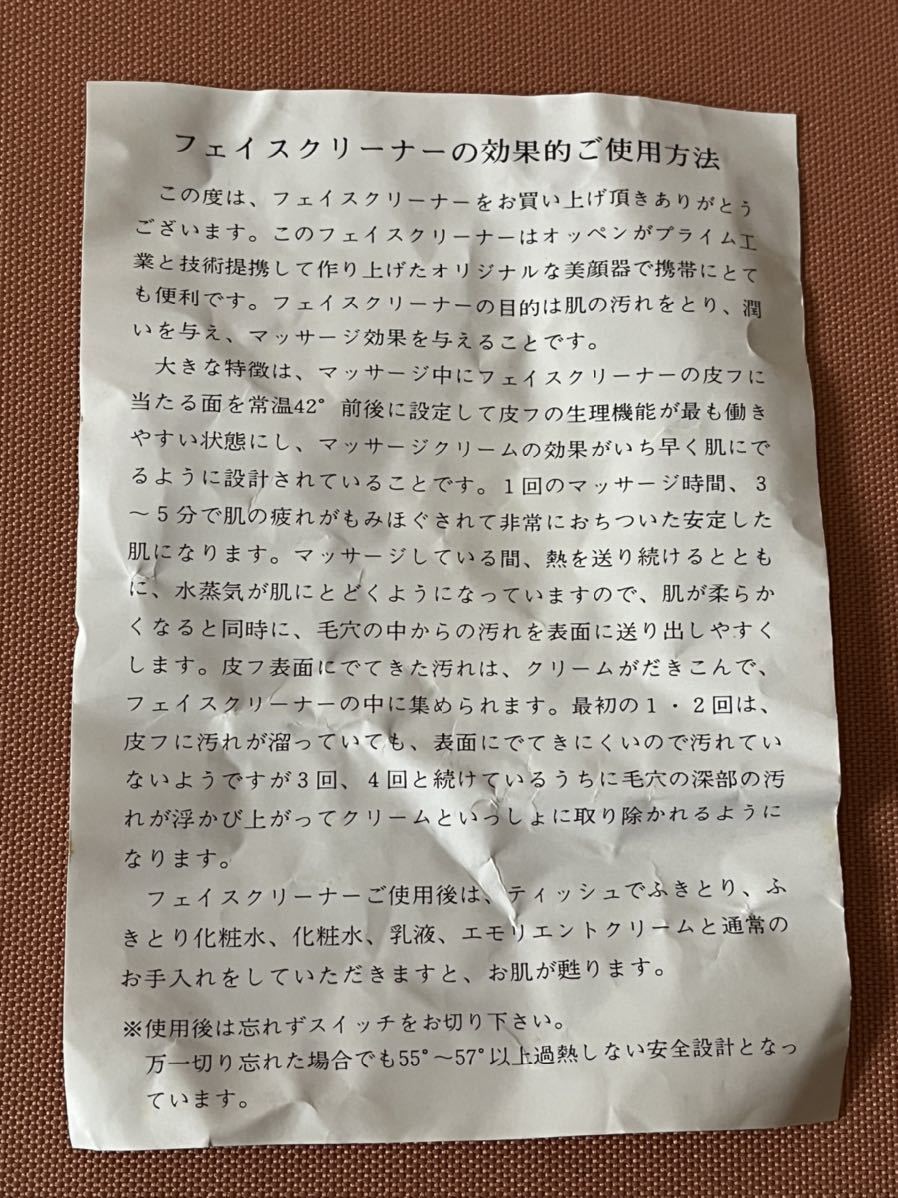 フェイスクリーナーの効果的ご使用方法
この度は、フェイスクリーナーをお買い上げ頂きありがとう
ございます。このフェイスクリーナーはオッペンがプライム工
業と技術提携して作り上げたオリジナルな美顔器で携帯にとて
も便利です。フェイスクリーナーの目的は肌の汚れをとり、潤
いを与え、マッサージ効果を与えることです。
大きな特徴は、マッサージ中にフェイスクリーナーの皮フに
当たる面を常温42°前後に設定して皮フの生理機能が最も働き
やすい状態にし、マッサージクリームの効果がいち早く肌にで
るように設計されていることです。1回のマッサージ時間、3
～5分で肌の疲れがもみほぐされて非常におちついた安定した
肌になります。マッサージしている間、熱を送り続けるととも
に、水蒸気が肌にとどくようになっていますので、肌が柔らか
くなると同時に、毛穴の中からの汚れを表面に送り出しやすく
します。皮フ表面にでてきた汚れは、クリームがだきこんで、
フェイスクリーナーの中に集められます。最初の1・2回は、
皮フに汚れが溜っていても、表面にでてきにくいので汚れてい
ないようですが3回、4回と続けているうちに毛穴の深部の汚
れが浮かび上がってクリームといっしょに取り除かれるように
なります。
フェイスクリーナーご使用後は、ティッシュでふきとり、ふ
きとり化粧水、化粧水、乳液、エモリエントクリームと通常の
お手入れをしていただきますと、お肌が甦ります。
※使用後は忘れずスイッチをお切り下さい。
万一切り忘れた場合でも55°～57°以上過熱しない安全設計となっ
ています。